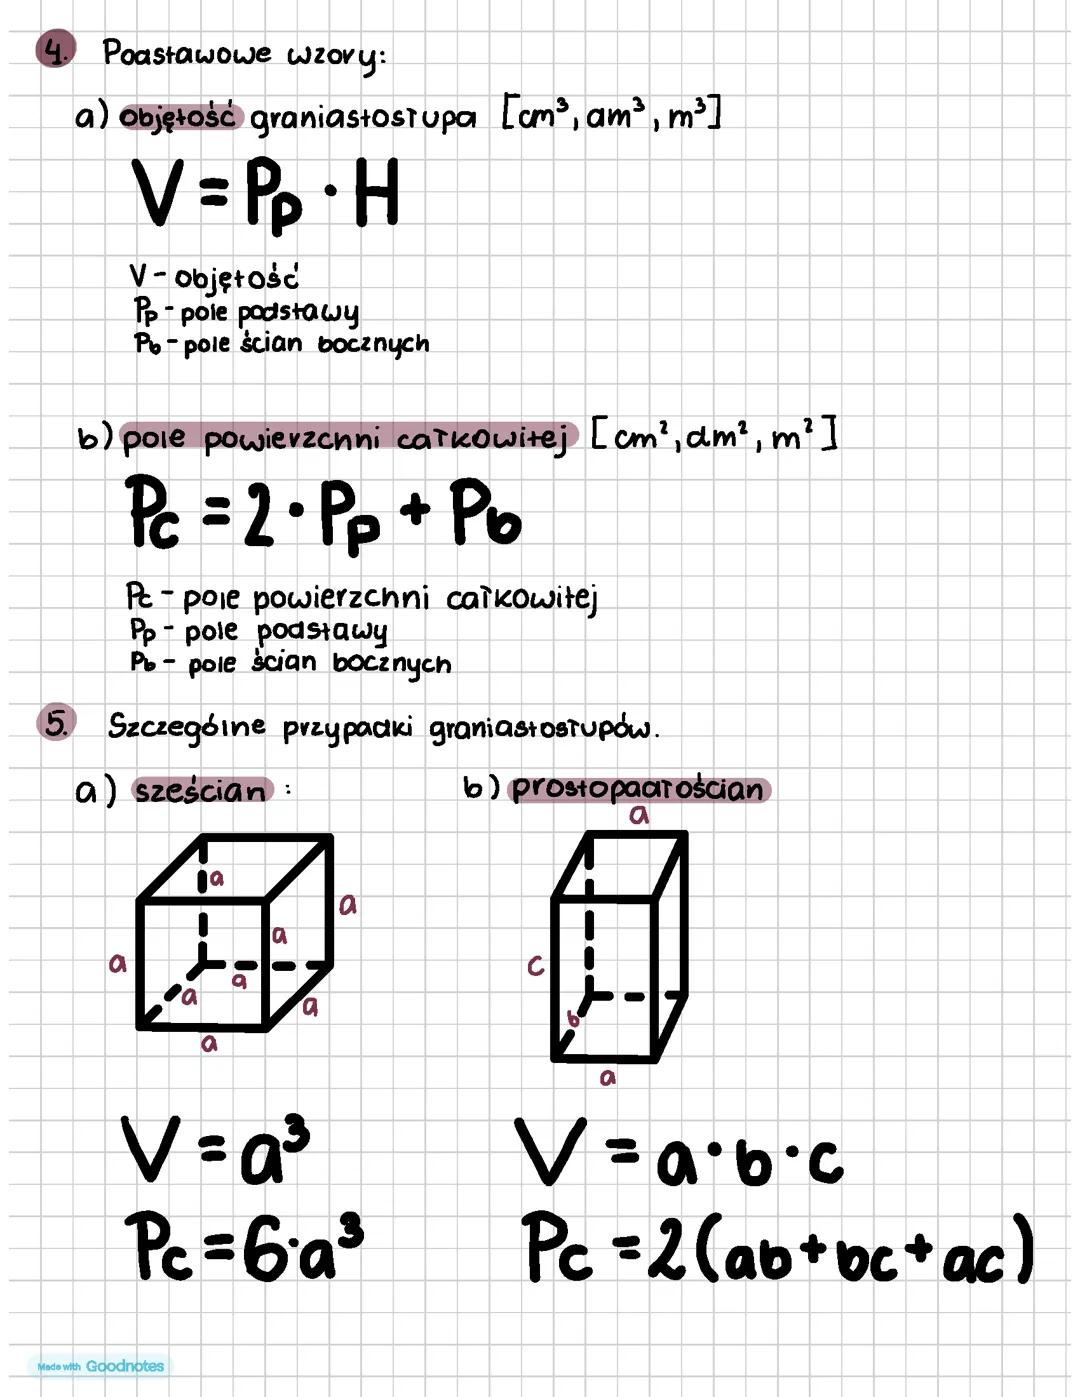 4. Podstawowe wzory:
a) objętość graniastosłupa [cm³, dm³, m³]
V = Pp · H
V - objętość
Pp - pole podstawy
Pb - pole ścian bocznych
b) pole powierzchni całkowitej [cm², dm², m²]
Pc = 2 · Pp + Pb
Pc - pole powierzchni całkowitej
Pp - pole podstawy
Pb - pole ścian bocznych
5. Szczególne przypadki graniastosłupów.
a) sześcian :
b) prostopadłościan
a
a
a
a
a
a
a
a
a
c
b
a
V = a³
Pc = 6·a³
V = a·b·c
Pc = 2(ab+bc+ac)
Made with Goodnotes